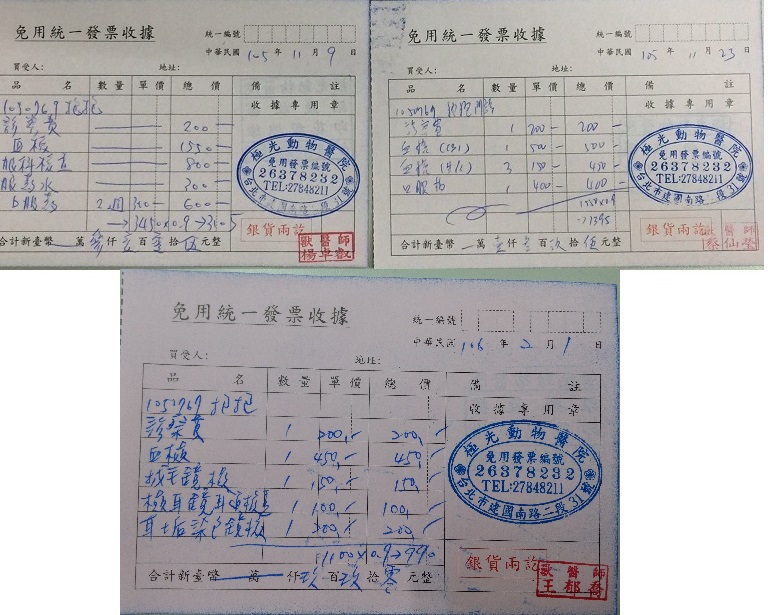 免用統一發票收據
統一編號
中華民國 105 年 11 月 9 日
買受人: 地址:
品 名 數量 單價 總價 備 註
1050969 抱抱 收據專用章
診察費 200-
血檢 1550-
眼科檢查 800-
眼藥水 300-
口服藥 2週 300- 600-
→3450×0.9→3105
極光動物醫院
免用發票編號
26378232
TEL:27848211
台北市建國南路二段31號
銀貨兩訖
合計新臺幣 萬 參仟壹百零拾伍元整
獸醫師
楊卓叡
免用統一發票收據
統一編號
中華民國 105 年 11 月 23 日
買受人: 地址:
品 名 數量 單價 總價 備 註
1050969 抱抱 收據專用章
診察費 1 200- 200-
血檢 1 500- 500-
血檢 3 150- 450-
口服藥 1 400- 400-
1550×0.9
→1395
極光動物醫院
免用發票編號
26378232
TEL:27848211
台北市建國南路二段31號
銀貨兩訖
合計新臺幣 萬壹仟參百玖拾伍元整
獸醫師
蔡仙瑩
免用統一發票收據
統一編號
中華民國 106 年 2 月 1 日
買受人: 地址:
品 名 數量 單價 總價 備 註
1050969 抱抱 收據專用章
診察費 1 200,- 200,-
血檢 1 450,- 450,-
拔毛鏡檢 1 150,- 150,-
檢耳鏡耳道檢查 1 100,- 100,-
耳垢染色鏡檢 1 200,- 200,-
1100×0.9→990
極光動物醫院
免用發票編號
26378232
TEL:27848211
台北市建國南路二段31號
銀貨兩訖
合計新臺幣 萬 仟玖百玖拾零元整
獸醫師
王郁喬